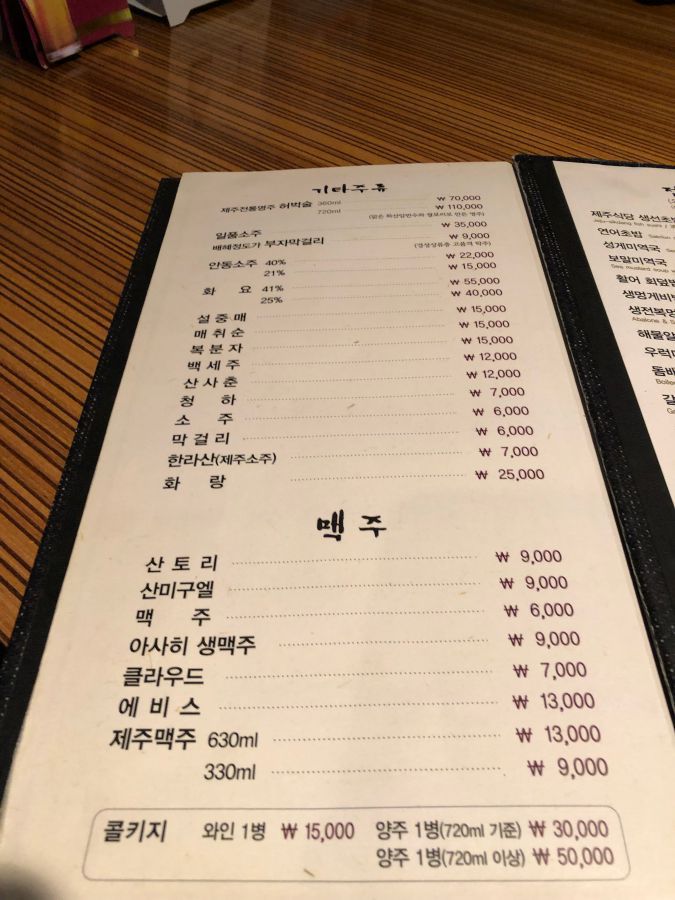 기타주류
제주전통명주 허벅술 360ml ₩ 70,000
720ml ₩ 110,000
(맑은 화산암반수와 청보리로 만든 명주)
일품소주 ₩ 35,000
배혜정도가 부자막걸리 ₩ 9,000
(경성상류층 고품격 탁주)
안동소주 40% ₩ 22,000
21% ₩ 15,000
화 요 41% ₩ 55,000
25% ₩ 40,000
설 중 매 ₩ 15,000
매 취 순 ₩ 15,000
복 분 자 ₩ 15,000
백 세 주 ₩ 12,000
산 사 춘 ₩ 12,000
청 하 ₩ 7,000
소 주 ₩ 6,000
막 걸 리 ₩ 6,000
한라산(제주소주) ₩ 7,000
화 랑 ₩ 25,000
맥 주
산 토 리 ₩ 9,000
산미구엘 ₩ 9,000
맥 주 ₩ 6,000
아사히 생맥주 ₩ 9,000
클라우드 ₩ 7,000
에 비 스 ₩ 13,000
제주맥주 630ml ₩ 13,000
330ml ₩ 9,000
콜키지 와인 1병 ₩ 15,000 양주 1병(720ml 기준) ₩ 30,000
양주 1병(720ml 이상) ₩ 50,000
제주식당 생선초밥
연어초밥
성게미역국
보말미역국
활어 회덮밥
생멍게비빔
생전복
해물알
우럭
돔베
갈